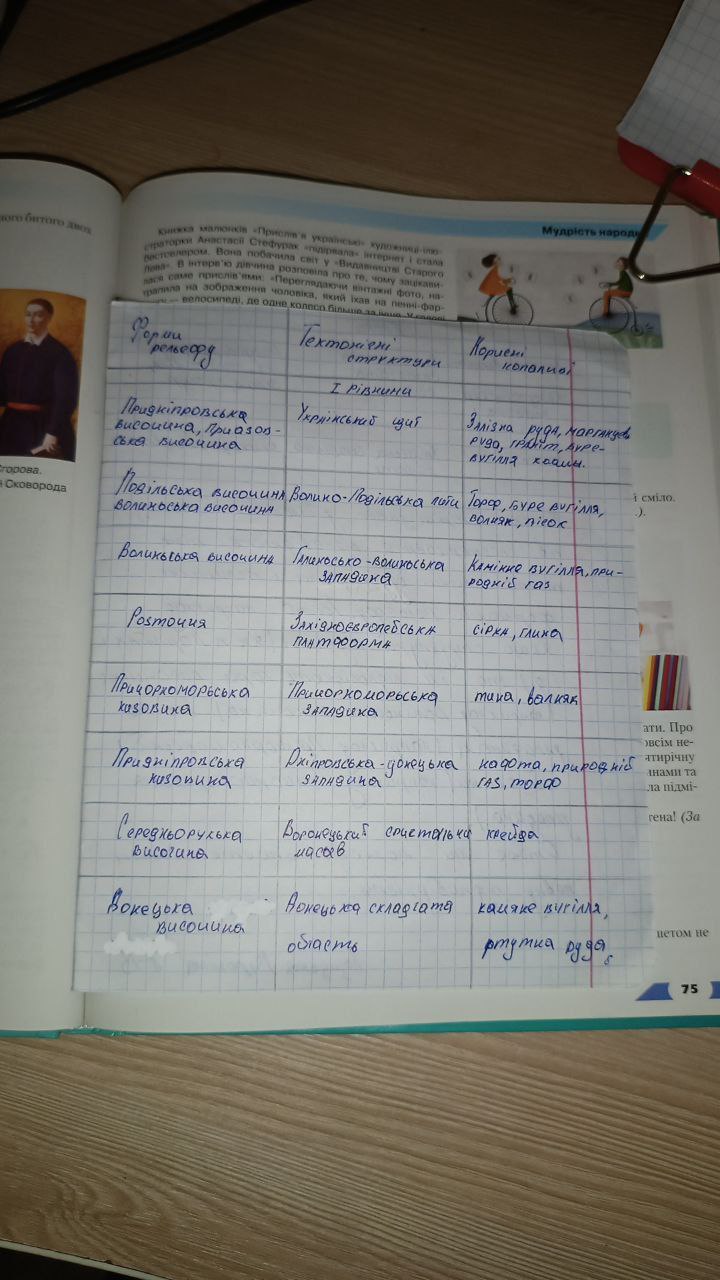 ного битого двох
Книжка малюнків «Прислів'я українські» художниці-ілю-
страторки Анастасії Стефурак «підірвала» інтернет і стала
бестселером. Вона побачила світ у «Видавництві Старого
Лева». В інтерв'ю дівчина розповіла про те, чому зацікави-
лася саме прислів'ями: «Переглядаючи вінтажні фото, на-
трапила на зображення чоловіка, який їхав на пенні-фар-
велосипеді, де одне колесо більше за інше
Мудрість народу
Форми
рельєфу
Тектонічні
структури
Корисні
копалині
I рівнини
Придніпровська
височина, Приазов-
ська височина
Український щит
Залізна руда, марганцева
руда, граніт, буре-
вугілля
Подільська височина
Волинська височина
Волино-Подільська плити
Торф, буре вугілля,
вапняк, пісок
Волинська височина
Галицсько-Волинська
западина
Камінне вугілля, при-
родній газ
Розточчя
Західноєвропейська
платформа
сірка, глина
Причорноморська
низовина
Причорноморська
западина
глина, вапняк
Придніпровська
низовина
Дніпровська-донецька
западина
нафта, природній
газ, торф
Середньоруська
височина
Воронецький кристальни
масив
крейда
Донецька
височина
Донецька складчата
область
камяне вугілля,
ртутна руда
горова.
Сковорода
й сміло.
.).
ати. Про
овсім не-
атиричну
нами та
ла підмі-
тена! (За
цетом не
75